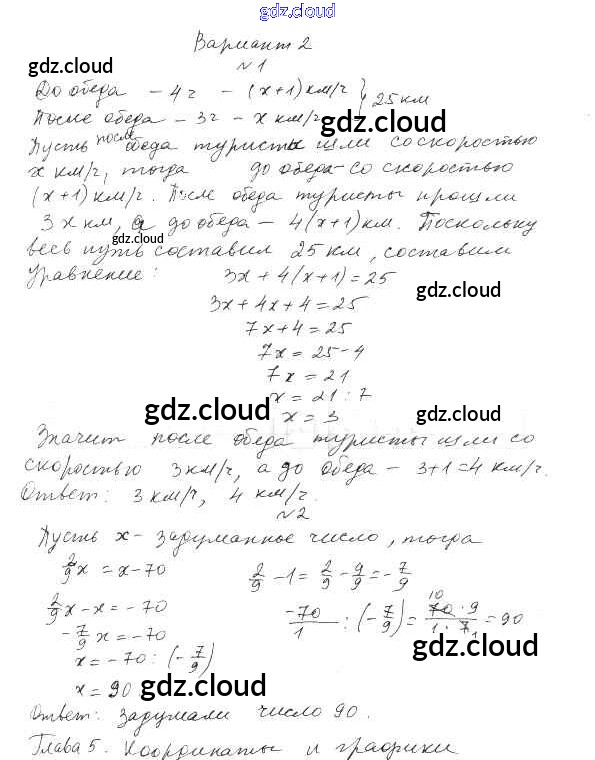 gdz.cloud
Вариант 2
gdz.cloud
№1
До обеда – 4 ч – (x+1) км/ч } 25 км
После обеда – 3 ч – x км/ч
gdz.cloud
Пусть после обеда туристы шли со скоростью
x км/ч, тогда до обеда – со скоростью
(x+1) км/ч. После обеда туристы прошли
3x км, а до обеда – 4(x+1) км. Поскольку
gdz.cloud
весь путь составил 25 км, составим
уравнение: 3x + 4(x+1) = 25
gdz.cloud
3x + 4x + 4 = 25
7x + 4 = 25
7x = 25 – 4
7x = 21
x = 21 : 7
gdz.cloud gdz.cloud
x = 3
Значит после обеда туристы шли со
скоростью 3 км/ч, а до обеда – 3+1=4 км/ч.
Ответ: 3 км/ч, 4 км/ч.
№2
Пусть x – задуманное число, тогда
2/9 x = x – 70 2/9 – 1 = 2/9 – 9/9 = – 7/9
2/9 x – x = – 70 –70/1 : (– 7/9) = 70 · 9 / 1 · 7 = 90
10 1
– 7/9 x = – 70
x = – 70 : (– 7/9)
x = 90
gdz.cloud gdz.cloud
Ответ: задумали число 90.
Глава 5. Координаты и графики